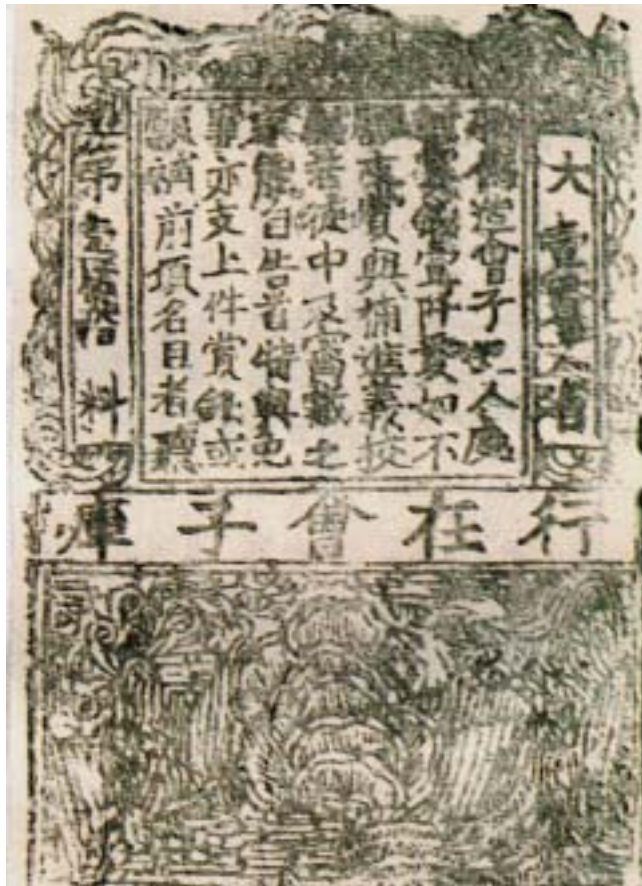 大壹貫文省
敕偽造會子犯人處
斬賞錢壹阡貫如不
願支賞與補進義校
尉若徒中及窩藏之
家能自告首特與免
罪亦支上件賞錢或
願補前項名目者聽
第壹拾料
行在會子庫